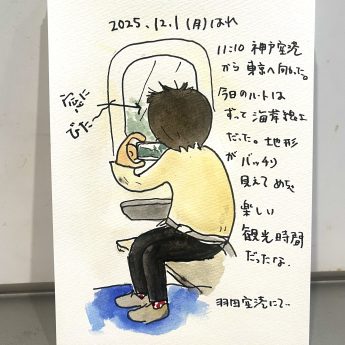 2025.12.1 (月) はれ
窓に
びた
11:10 神戸空港
から 東京へ向かった。
今日のルートは
ずっと 海岸線上
だった。地形
が バッチリ
見えて めちゃ
楽しい
観光時間
だったな.
羽田空港にて…